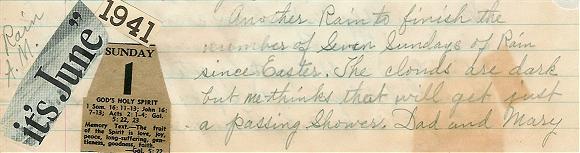 Rain
A.M.
"it's June"
1941
SUNDAY
1
GOD'S HOLY SPIRIT
1 Sam. 16: 11-13; John 16:
7-13; Acts 2: 1-4; Gal.
5: 22, 23
Memory Text.—The fruit
of the Spirit is love, joy,
peace, long-suffering, gen-
tleness, goodness, faith.
—Gal. 5: 22
Another Rain to finish the
number of Seven Sundays of Rain
since Easter. The clouds are dark
but me-thinks that will get just
a passing Shower. Dad and Mary